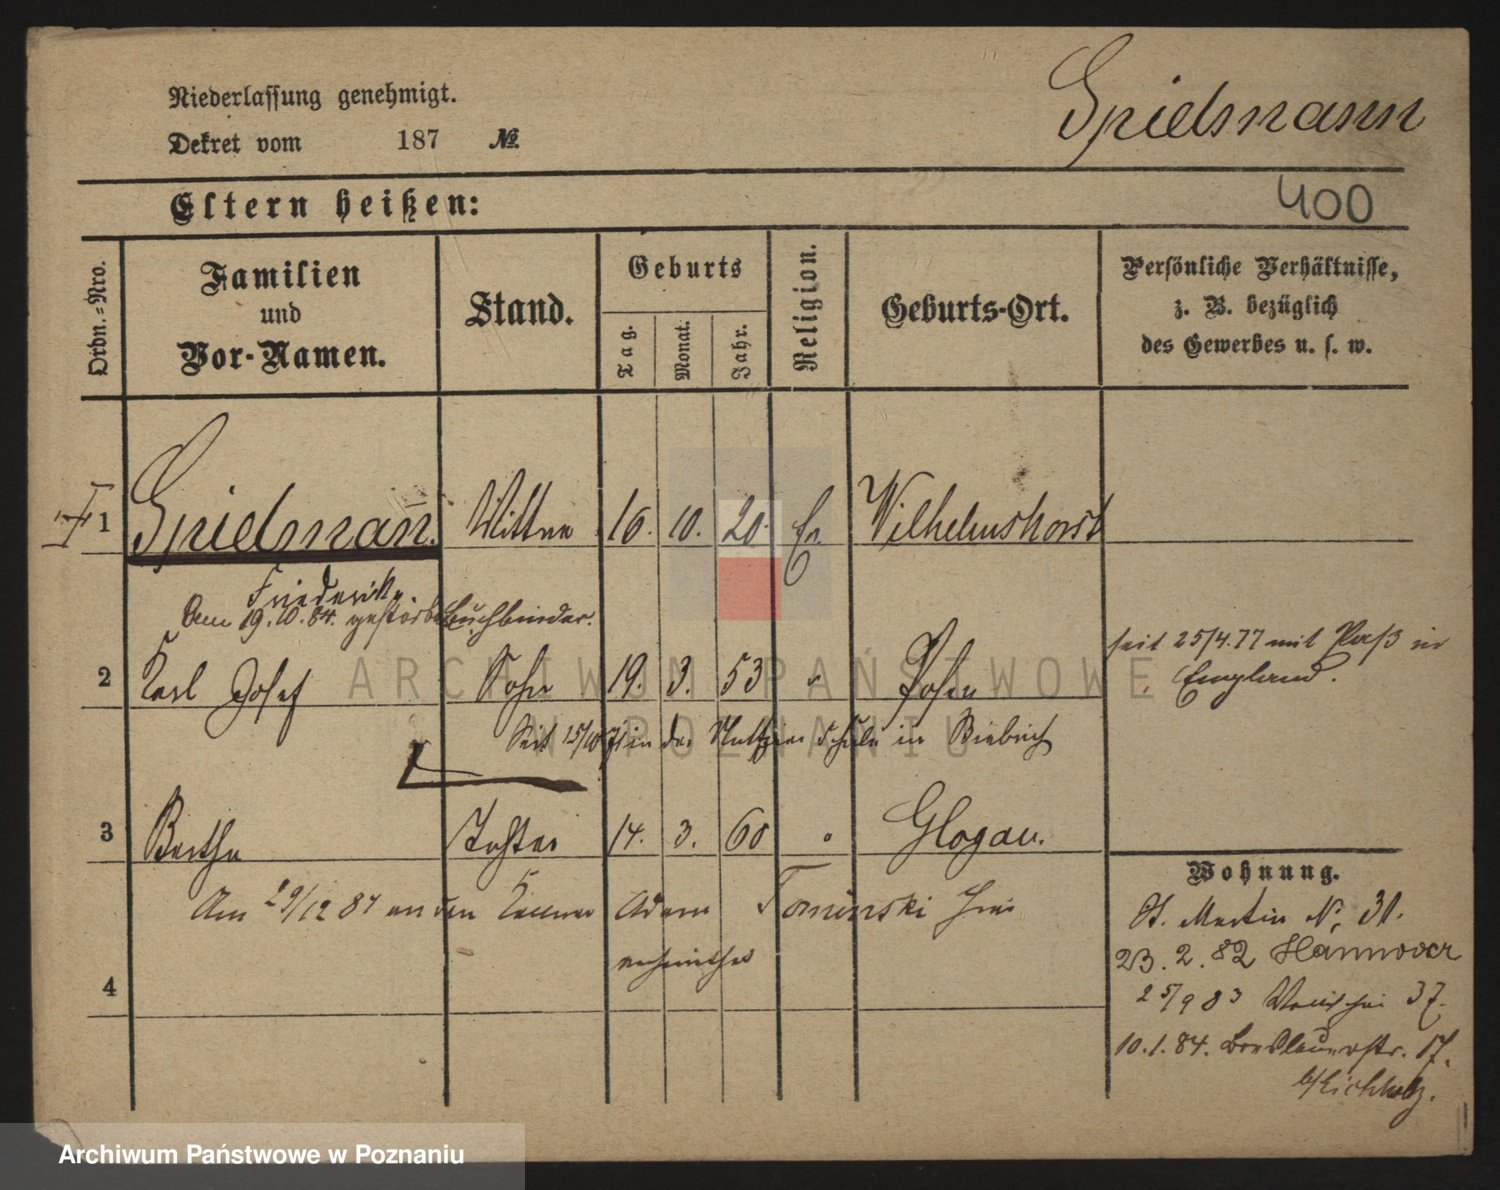 Niederlassung genehmigt.
Dekret vom 187 №
Spielmann
Eltern heißen:
400
Ordn.=Nro.
Familien
und
Vor-Namen.
Stand.
Geburts
Tag.
Monat.
Jahr.
Religion.
Geburts-Ort.
Persönliche Verhältnisse,
z. B. bezüglich
des Gewerbes u. s. w.
1 Spielmañ. Wittwe 16. 10. 20. Ev. Wilhelmshorst
Friederike.
Am 19.10.84. gestorben Buchbinder.
2 Karl Josef Sohn 19. 3. 53 " Posen
seit 25/4.77 mit Paß in
England.
Seit 15/10 71 in der Schule in Biebrich
3 Bertha Tochter 14. 3. 60 " Glogau.
Am 29/12 87 an den Kellner Adam Tominski hier
verheirathet
4
Wohnung.
St. Martin N. 31.
23.2.82 Hannover
25/9 83 37.
10.1.84. Breslauerstr. 17.
b/Eichholz.
ARCHIWUM PAŃSTWOWE
W POZNANIU
Archiwum Państwowe w Poznaniu